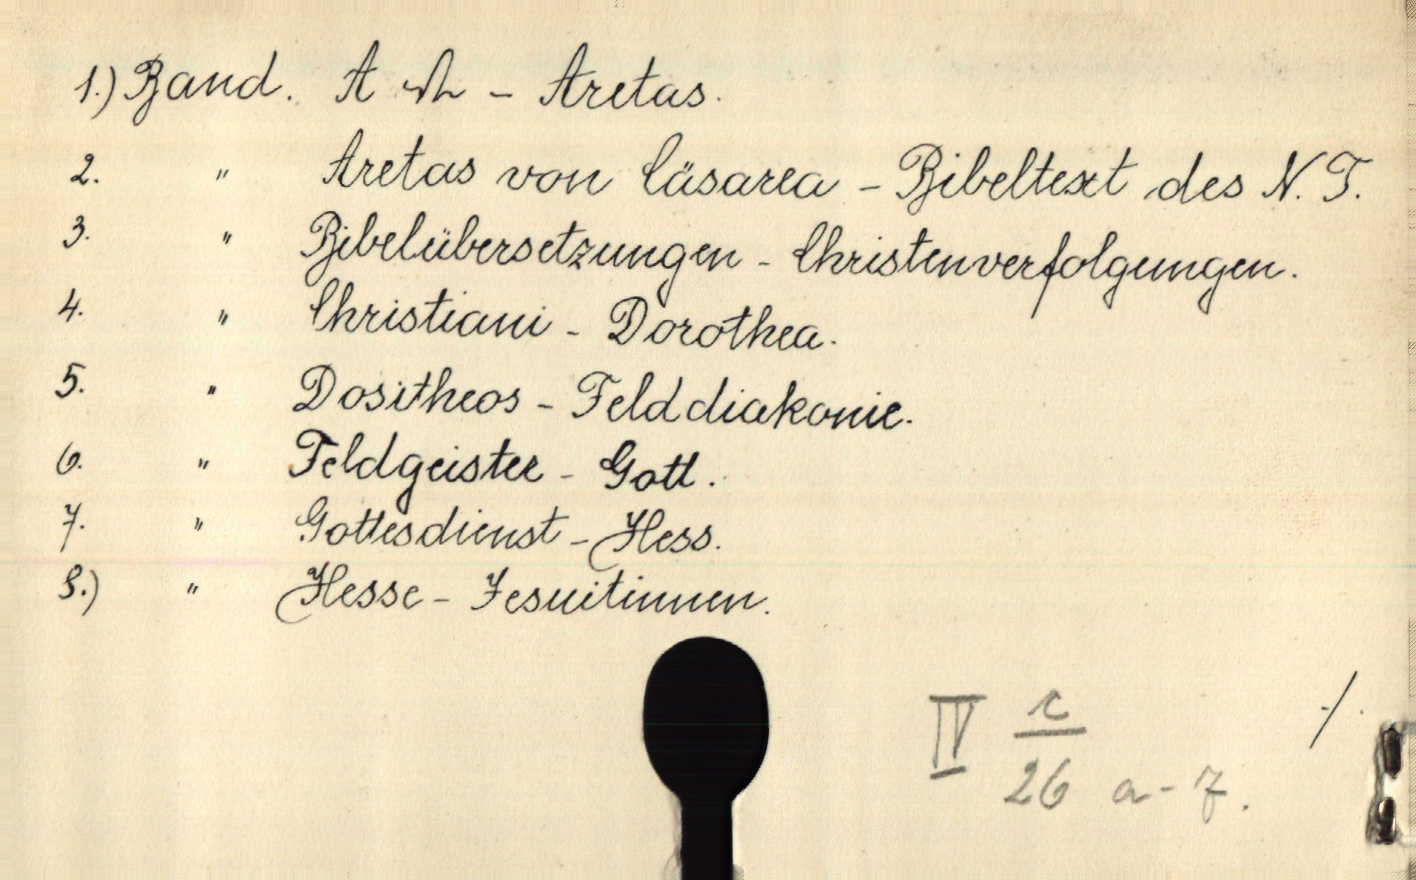 1.) Band. A u. Ω - Aretas.
2. " Aretas von Cäsarea - Bibeltext des N. T.
3. " Bibelübersetzungen - Christenverfolgungen.
4. " Christiani - Dorothea.
5. " Dositheos - Felddiakonie.
6. " Feldgeister - Gott.
7. " Gottesdienst - Hess.
8.) " Hesse - Jesuitinnen.
IV c ./.
26 a - z.